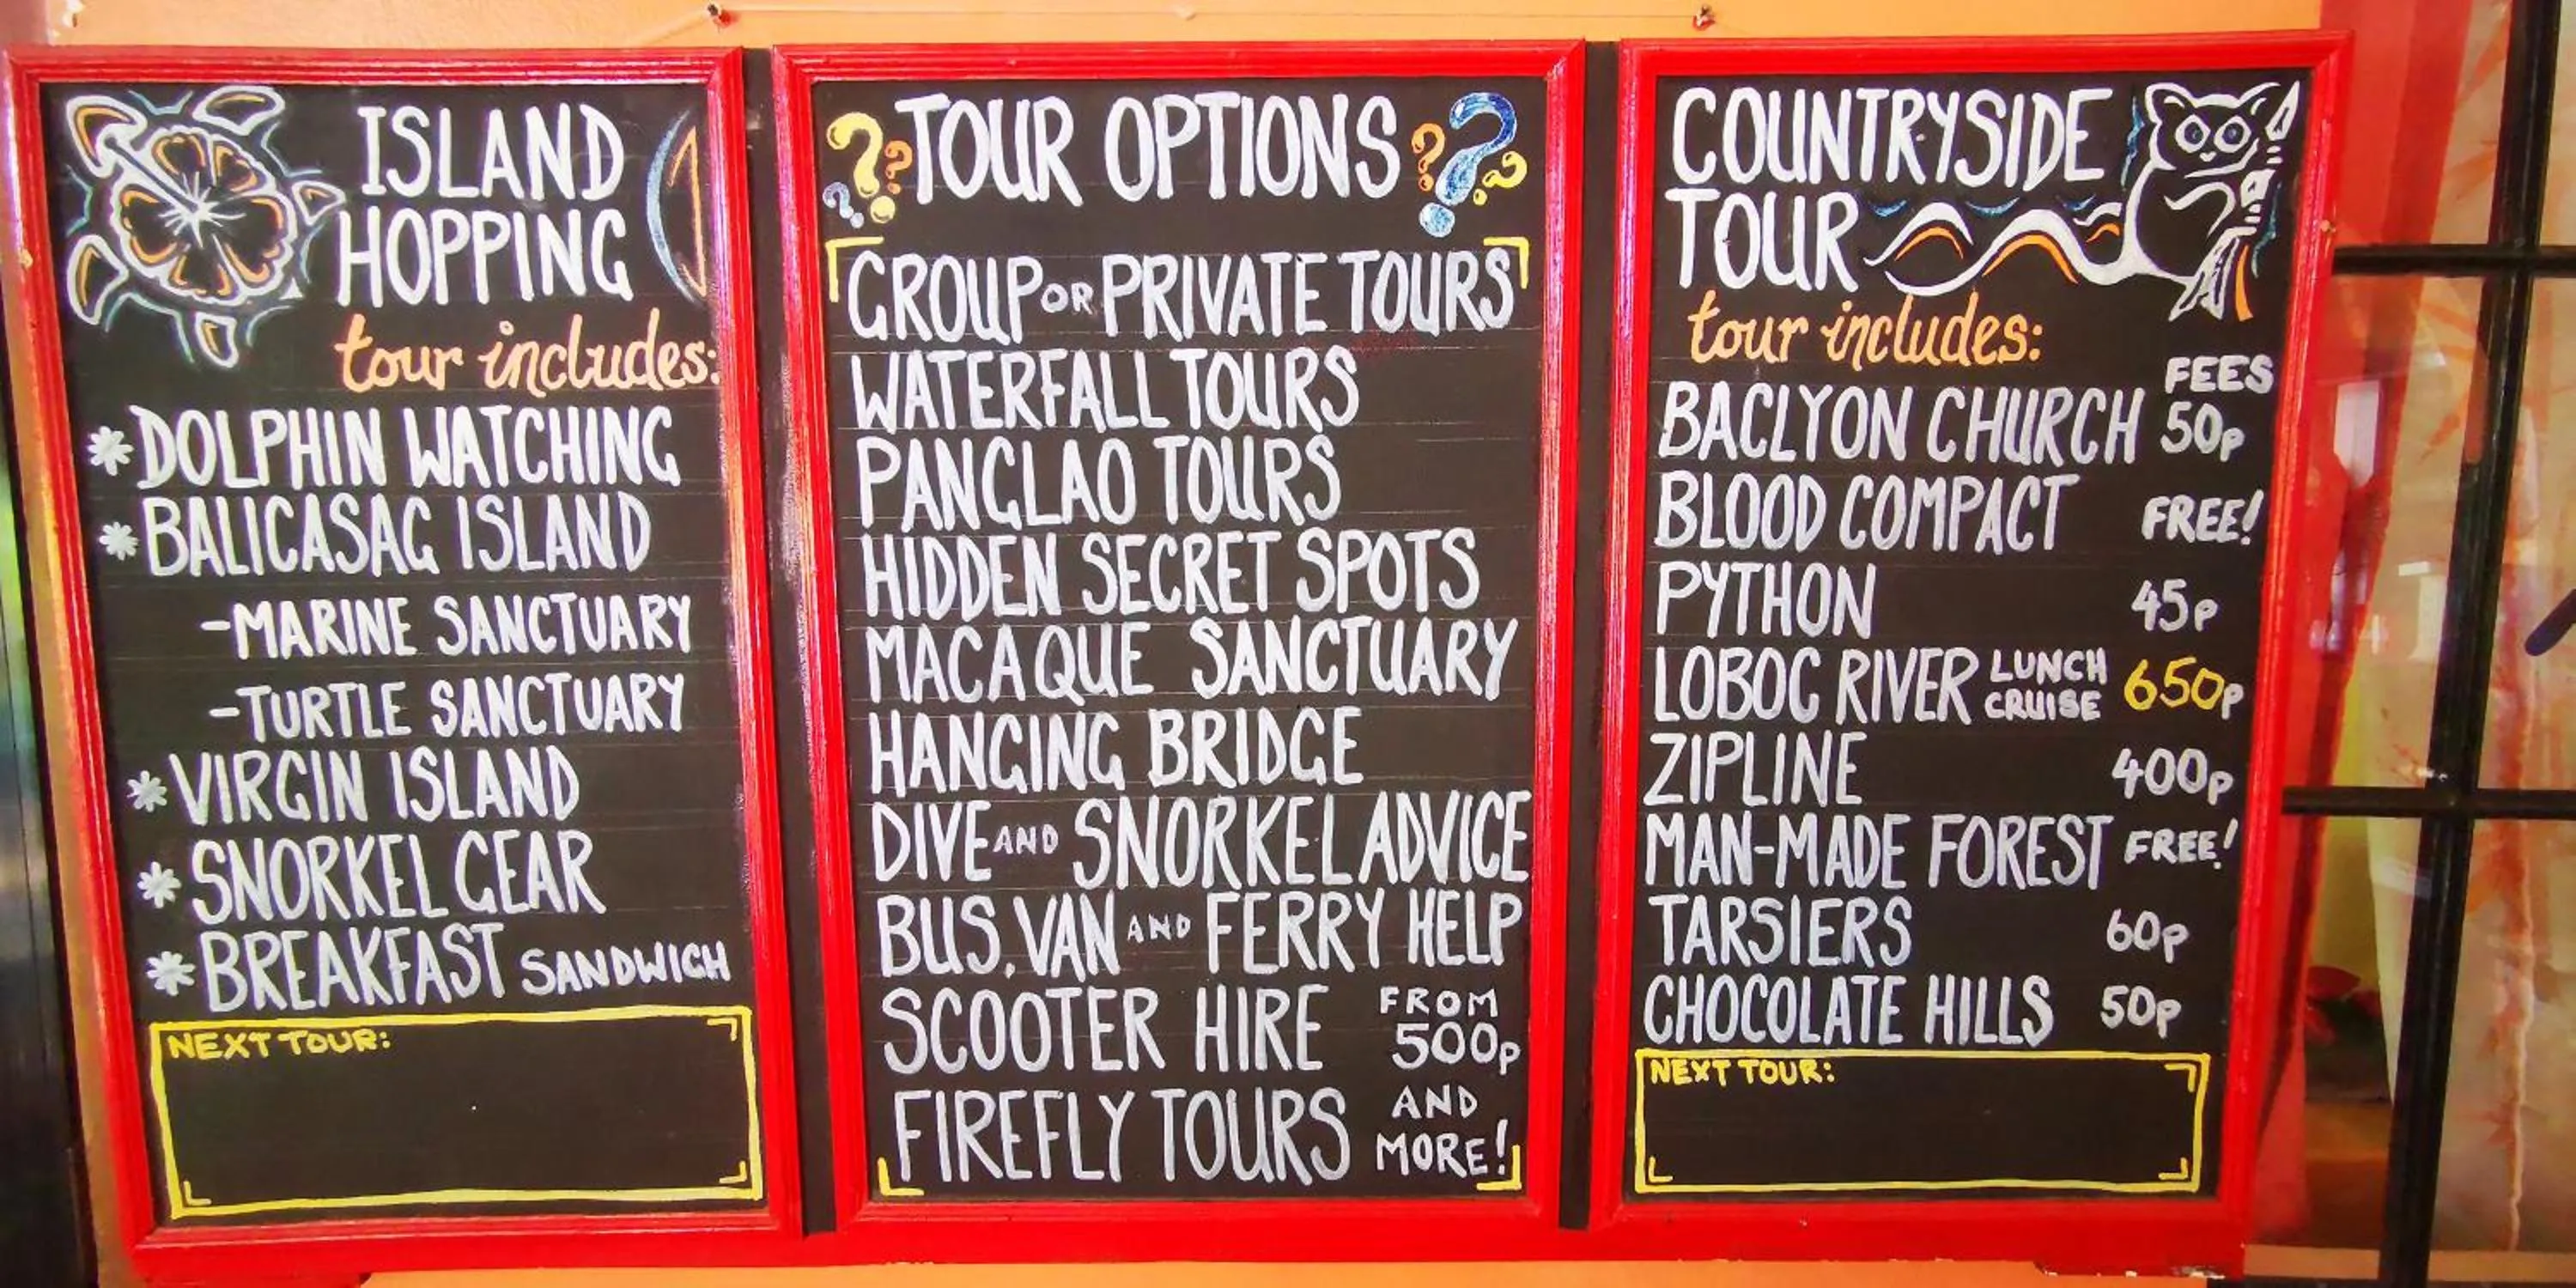 ISLAND
HOPPING
tour includes:
* DOLPHIN WATCHING
* BALICASAG ISLAND
-MARINE SANCTUARY
-TURTLE SANCTUARY
* VIRGIN ISLAND
* SNORKEL GEAR
* BREAKFAST SANDWICH
NEXT TOUR:
??? TOUR OPTIONS ???
GROUP OR PRIVATE TOURS
WATERFALL TOURS
PANGLAO TOURS
HIDDEN SECRET SPOTS
MACAQUE SANCTUARY
HANGING BRIDGE
DIVE AND SNORKEL ADVICE
BUS, VAN AND FERRY HELP
SCOOTER HIRE FROM 500p
FIREFLY TOURS AND MORE!
COUNTRYSIDE
TOUR
tour includes:
FEES
BACLYON CHURCH 50p
BLOOD COMPACT FREE!
PYTHON 45p
LOBOC RIVER LUNCH CRUISE 650p
ZIPLINE 400p
MAN-MADE FOREST FREE!
TARSIERS 60p
CHOCOLATE HILLS 50p
NEXT TOUR: